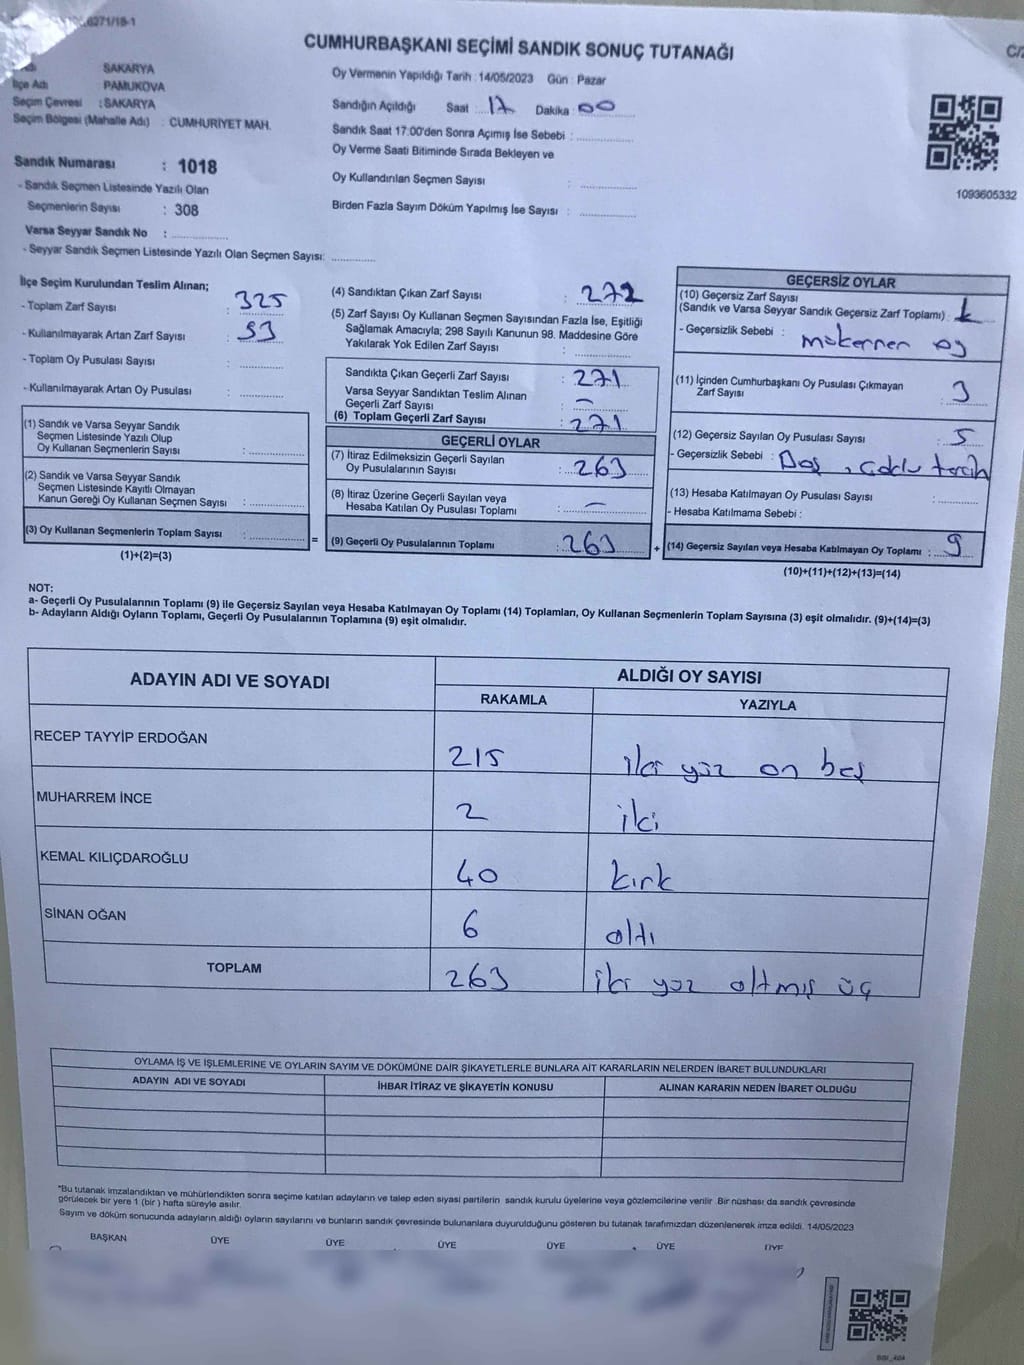 6271/18-1
CUMHURBAŞKANI SEÇİMİ SANDIK SONUÇ TUTANAĞI
SAKARYA
İlçe Adı PAMUKOVA
Seçim Çevresi : SAKARYA
Seçim Bölgesi (Mahalle Adı) : CUMHURİYET MAH.
Sandık Numarası : 1018
- Sandık Seçmen Listesinde Yazılı Olan
Seçmenlerin Sayısı : 308
Varsa Seyyar Sandık No :
- Seyyar Sandık Seçmen Listesinde Yazılı Olan Seçmen Sayısı:
Oy Vermenin Yapıldığı Tarih : 14/05/2023 Gün : Pazar
Sandığın Açıldığı Saat : 17 Dakika : 00
Sandık Saat 17:00'den Sonra Açımış İse Sebebi :
Oy Verme Saati Bitiminde Sırada Bekleyen ve
Oy Kullandırılan Seçmen Sayısı :
Birden Fazla Sayım Döküm Yapılmış İse Sayısı :
1093605332
İlçe Seçim Kurulundan Teslim Alınan;
- Toplam Zarf Sayısı : 325
- Kullanılmayarak Artan Zarf Sayısı : 53
- Toplam Oy Pusulası Sayısı :
- Kullanılmayarak Artan Oy Pusulası :
(1) Sandık ve Varsa Seyyar Sandık
Seçmen Listesinde Yazılı Olup
Oy Kullanan Seçmenlerin Sayısı :
(2) Sandık ve Varsa Seyyar Sandık
Seçmen Listesinde Kayıtlı Olmayan
Kanun Gereği Oy Kullanan Seçmen Sayısı :
(3) Oy Kullanan Seçmenlerin Toplam Sayısı : =
(1)+(2)=(3)
(4) Sandıktan Çıkan Zarf Sayısı : 272
(5) Zarf Sayısı Oy Kullanan Seçmen Sayısından Fazla İse, Eşitliği
Sağlamak Amacıyla; 298 Sayılı Kanunun 98. Maddesine Göre
Yakılarak Yok Edilen Zarf Sayısı :
Sandıkta Çıkan Geçerli Zarf Sayısı : 271
Varsa Seyyar Sandıktan Teslim Alınan
Geçerli Zarf Sayısı : -
(6) Toplam Geçerli Zarf Sayısı : 271
GEÇERLİ OYLAR
(7) İtiraz Edilmeksizin Geçerli Sayılan
Oy Pusulalarının Sayısı : 263
(8) İtiraz Üzerine Geçerli Sayılan veya
Hesaba Katılan Oy Pusulası Toplamı : -
(9) Geçerli Oy Pusulalarının Toplamı : 263 +
GEÇERSİZ OYLAR
(10) Geçersiz Zarf Sayısı
(Sandık ve Varsa Seyyar Sandık Geçersiz Zarf Toplamı) :
- Geçersizlik Sebebi : mükerrer oy
(11) İçinden Cumhurbaşkanı Oy Pusulası Çıkmayan
Zarf Sayısı : 3
(12) Geçersiz Sayılan Oy Pusulası Sayısı : 5
- Geçersizlik Sebebi : Boş, çoklu tercih
(13) Hesaba Katılmayan Oy Pusulası Sayısı :
- Hesaba Katılmama Sebebi :
(14) Geçersiz Sayılan veya Hesaba Katılmayan Oy Toplamı : 9
(10)+(11)+(12)+(13)=(14)
NOT:
a- Geçerli Oy Pusulalarının Toplamı (9) ile Geçersiz Sayılan veya Hesaba Katılmayan Oy Toplamı (14) Toplamları, Oy Kullanan Seçmenlerin Toplam Sayısına (3) eşit olmalıdır. (9)+(14)=(3)
b- Adayların Aldığı Oyların Toplamı, Geçerli Oy Pusulalarının Toplamına (9) eşit olmalıdır.
ADAYIN ADI VE SOYADI ALDIĞI OY SAYISI
RAKAMLA YAZIYLA
RECEP TAYYİP ERDOĞAN 215 iki yüz on beş
MUHARREM İNCE 2 iki
KEMAL KILIÇDAROĞLU 40 kırk
SİNAN OĞAN 6 altı
TOPLAM 263 iki yüz altmış üç
OYLAMA İŞ VE İŞLEMLERİNE VE OYLARIN SAYIM VE DÖKÜMÜNE DAİR ŞİKAYETLERLE BUNLARA AİT KARARLARIN NELERDEN İBARET BULUNDUKLARI
ADAYIN ADI VE SOYADI İHBAR İTİRAZ VE ŞİKAYETİN KONUSU ALINAN KARARIN NEDEN İBARET OLDUĞU
*Bu tutanak imzalandıktan ve mühürlendikten sonra seçime katılan adayların ve talep eden siyasi partilerin sandık kurulu üyelerine veya gözlemcilerine verilir. Bir nüshası da sandık çevresinde
görülecek bir yere 1 (bir ) hafta süreyle asılır.
Sayım ve döküm sonucunda adayların aldığı oyların sayılarını ve bunların sandık çevresinde bulunanlara duyurulduğunu gösteren bu tutanak tarafımızdan düzenlenerek imza edildi. 14/05/2023
BAŞKAN ÜYE ÜYE ÜYE ÜYE ÜYE ÜYE